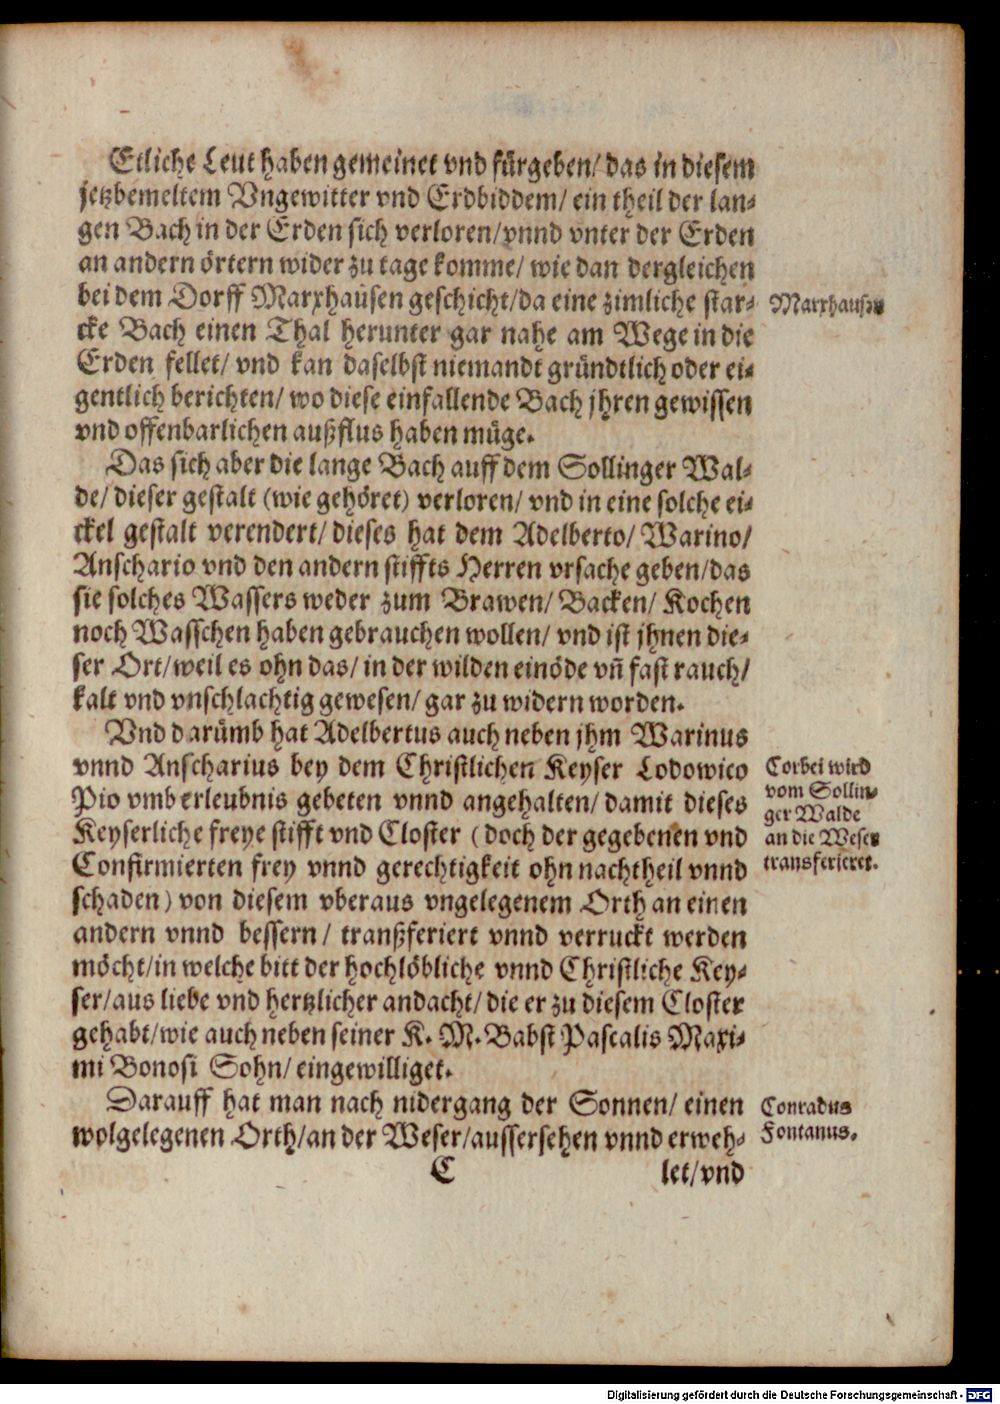 Etliche Leut haben gemeinet vnd fürgeben/ das in diesem
jetzbemeltem Vngewitter vnd Erdbiddem/ ein theil der lan-
gen Bach in der Erden sich verloren/ vnnd vnter der Erden
an andern örtern wider zu tage komme/ wie dan dergleichen
bei dem Dorff Marxhausen geschicht/ da eine zimliche star-
cke Bach einen Thal herunter gar nahe am Wege in die
Erden fellet/ vnd kan daselbst niemandt gründtlich oder ei-
gentlich berichten/ wo diese einfallende Bach jhren gewissen
vnd offenbarlichen außflus haben müge.
Das sich aber die lange Bach auff dem Sollinger Wal-
de/ dieser gestalt (wie gehöret) verloren/ vnd in eine solche ei-
ckel gestalt verendert/ dieses hat dem Adelberto/ Warino/
Anschario vnd den andern stiffts Herren vrsache geben/ das
sie solches Wassers weder zum Brawen/ Backen/ Kochen
noch Wasschen haben gebrauchen wollen/ vnd ist jhnen die-
ser Ort/ weil es ohn das/ in der wilden einöde vñ fast rauch/
kalt vnd vnschlachtig gewesen/ gar zu widern worden.
Vnd darümb hat Adelbertus auch neben jhm Warinus
vnnd Anscharius bey dem Christlichen Keyser Lodowico
Pio vmb erleubnis gebeten vnnd angehalten/ damit dieses
Keyserliche freye stifft vnd Closter (doch der gegebenen vnd
Confirmierten frey vnnd gerechtigkeit ohn nachtheil vnnd
schaden) von diesem vberaus vngelegenem Orth an einen
andern vnnd bessern/ tranßferiert vnnd verruckt werden
möcht/ in welche bitt der hochlöbliche vnnd Christliche Key-
ser/ aus liebe vnd hertzlicher andacht/ die er zu diesem Closter
gehabt/ wie auch neben seiner K. M. Babst Pascalis Maxi-
mi Bonosi Sohn/ eingewilliget.
Darauff hat man nach nidergang der Sonnen/ einen
wolgelegenen Orth/ an der Weser/ aussersehen vnnd erweh-
C let/ vnd
Marxhausen
Corbei wird
vom Sollin-
ger Walde
an die Weser
transferieret.
Conradus
Fontanus.
Digitalisierung gefördert durch die Deutsche Forschungsgemeinschaft - DFG